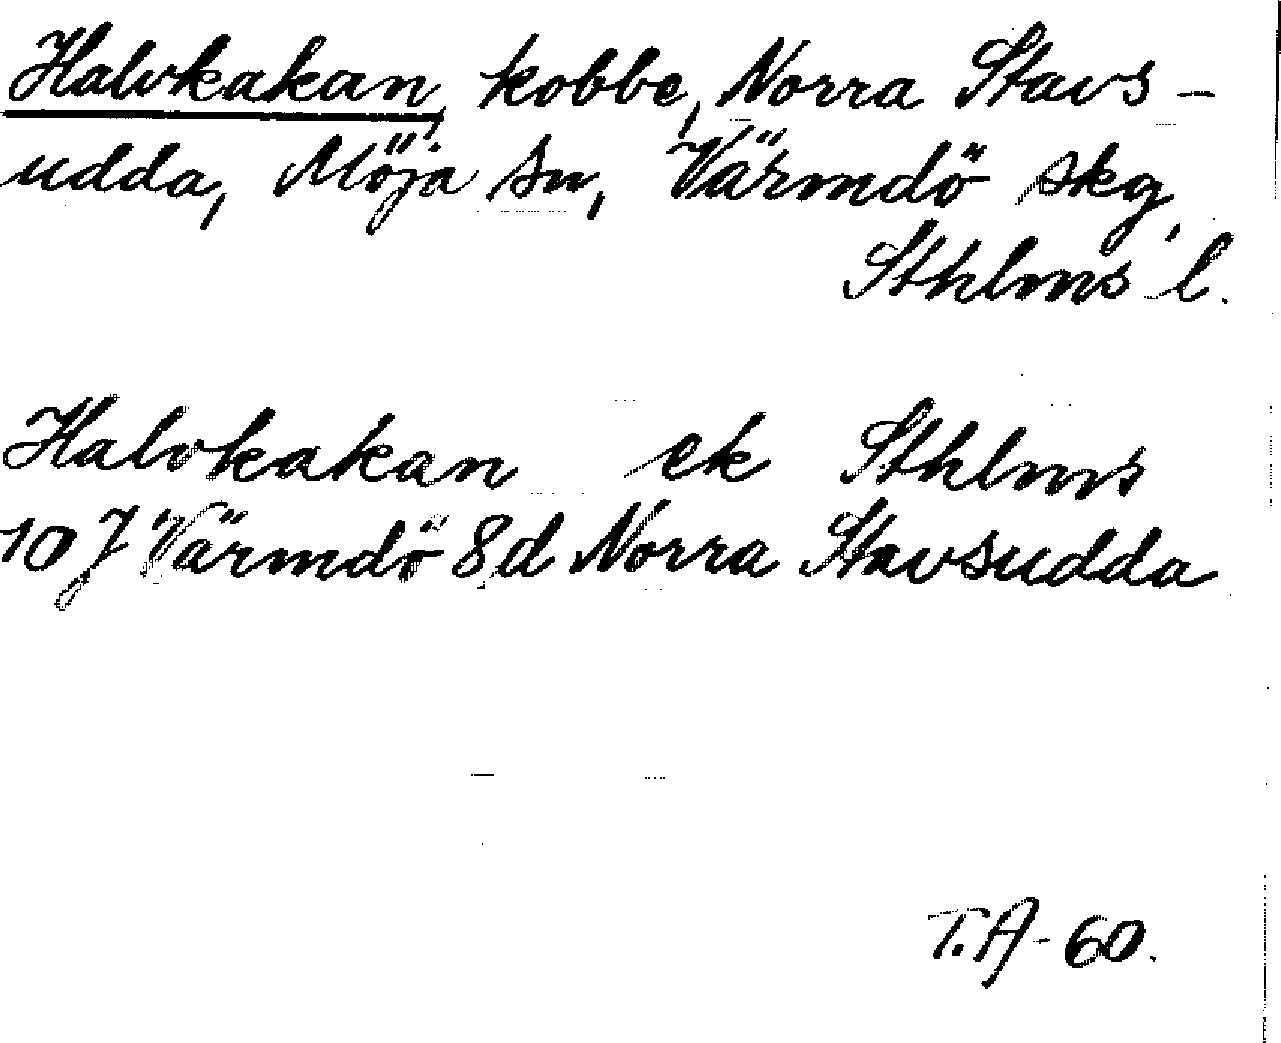 Halvkakan, kobbe, Norra Stavs-
udda, Möja sn, Värmdö skg,
Sthlms l.
Halvkakan ek Sthlms
10 J Värmdö 8d Norra Stavsudda
T.A-60.